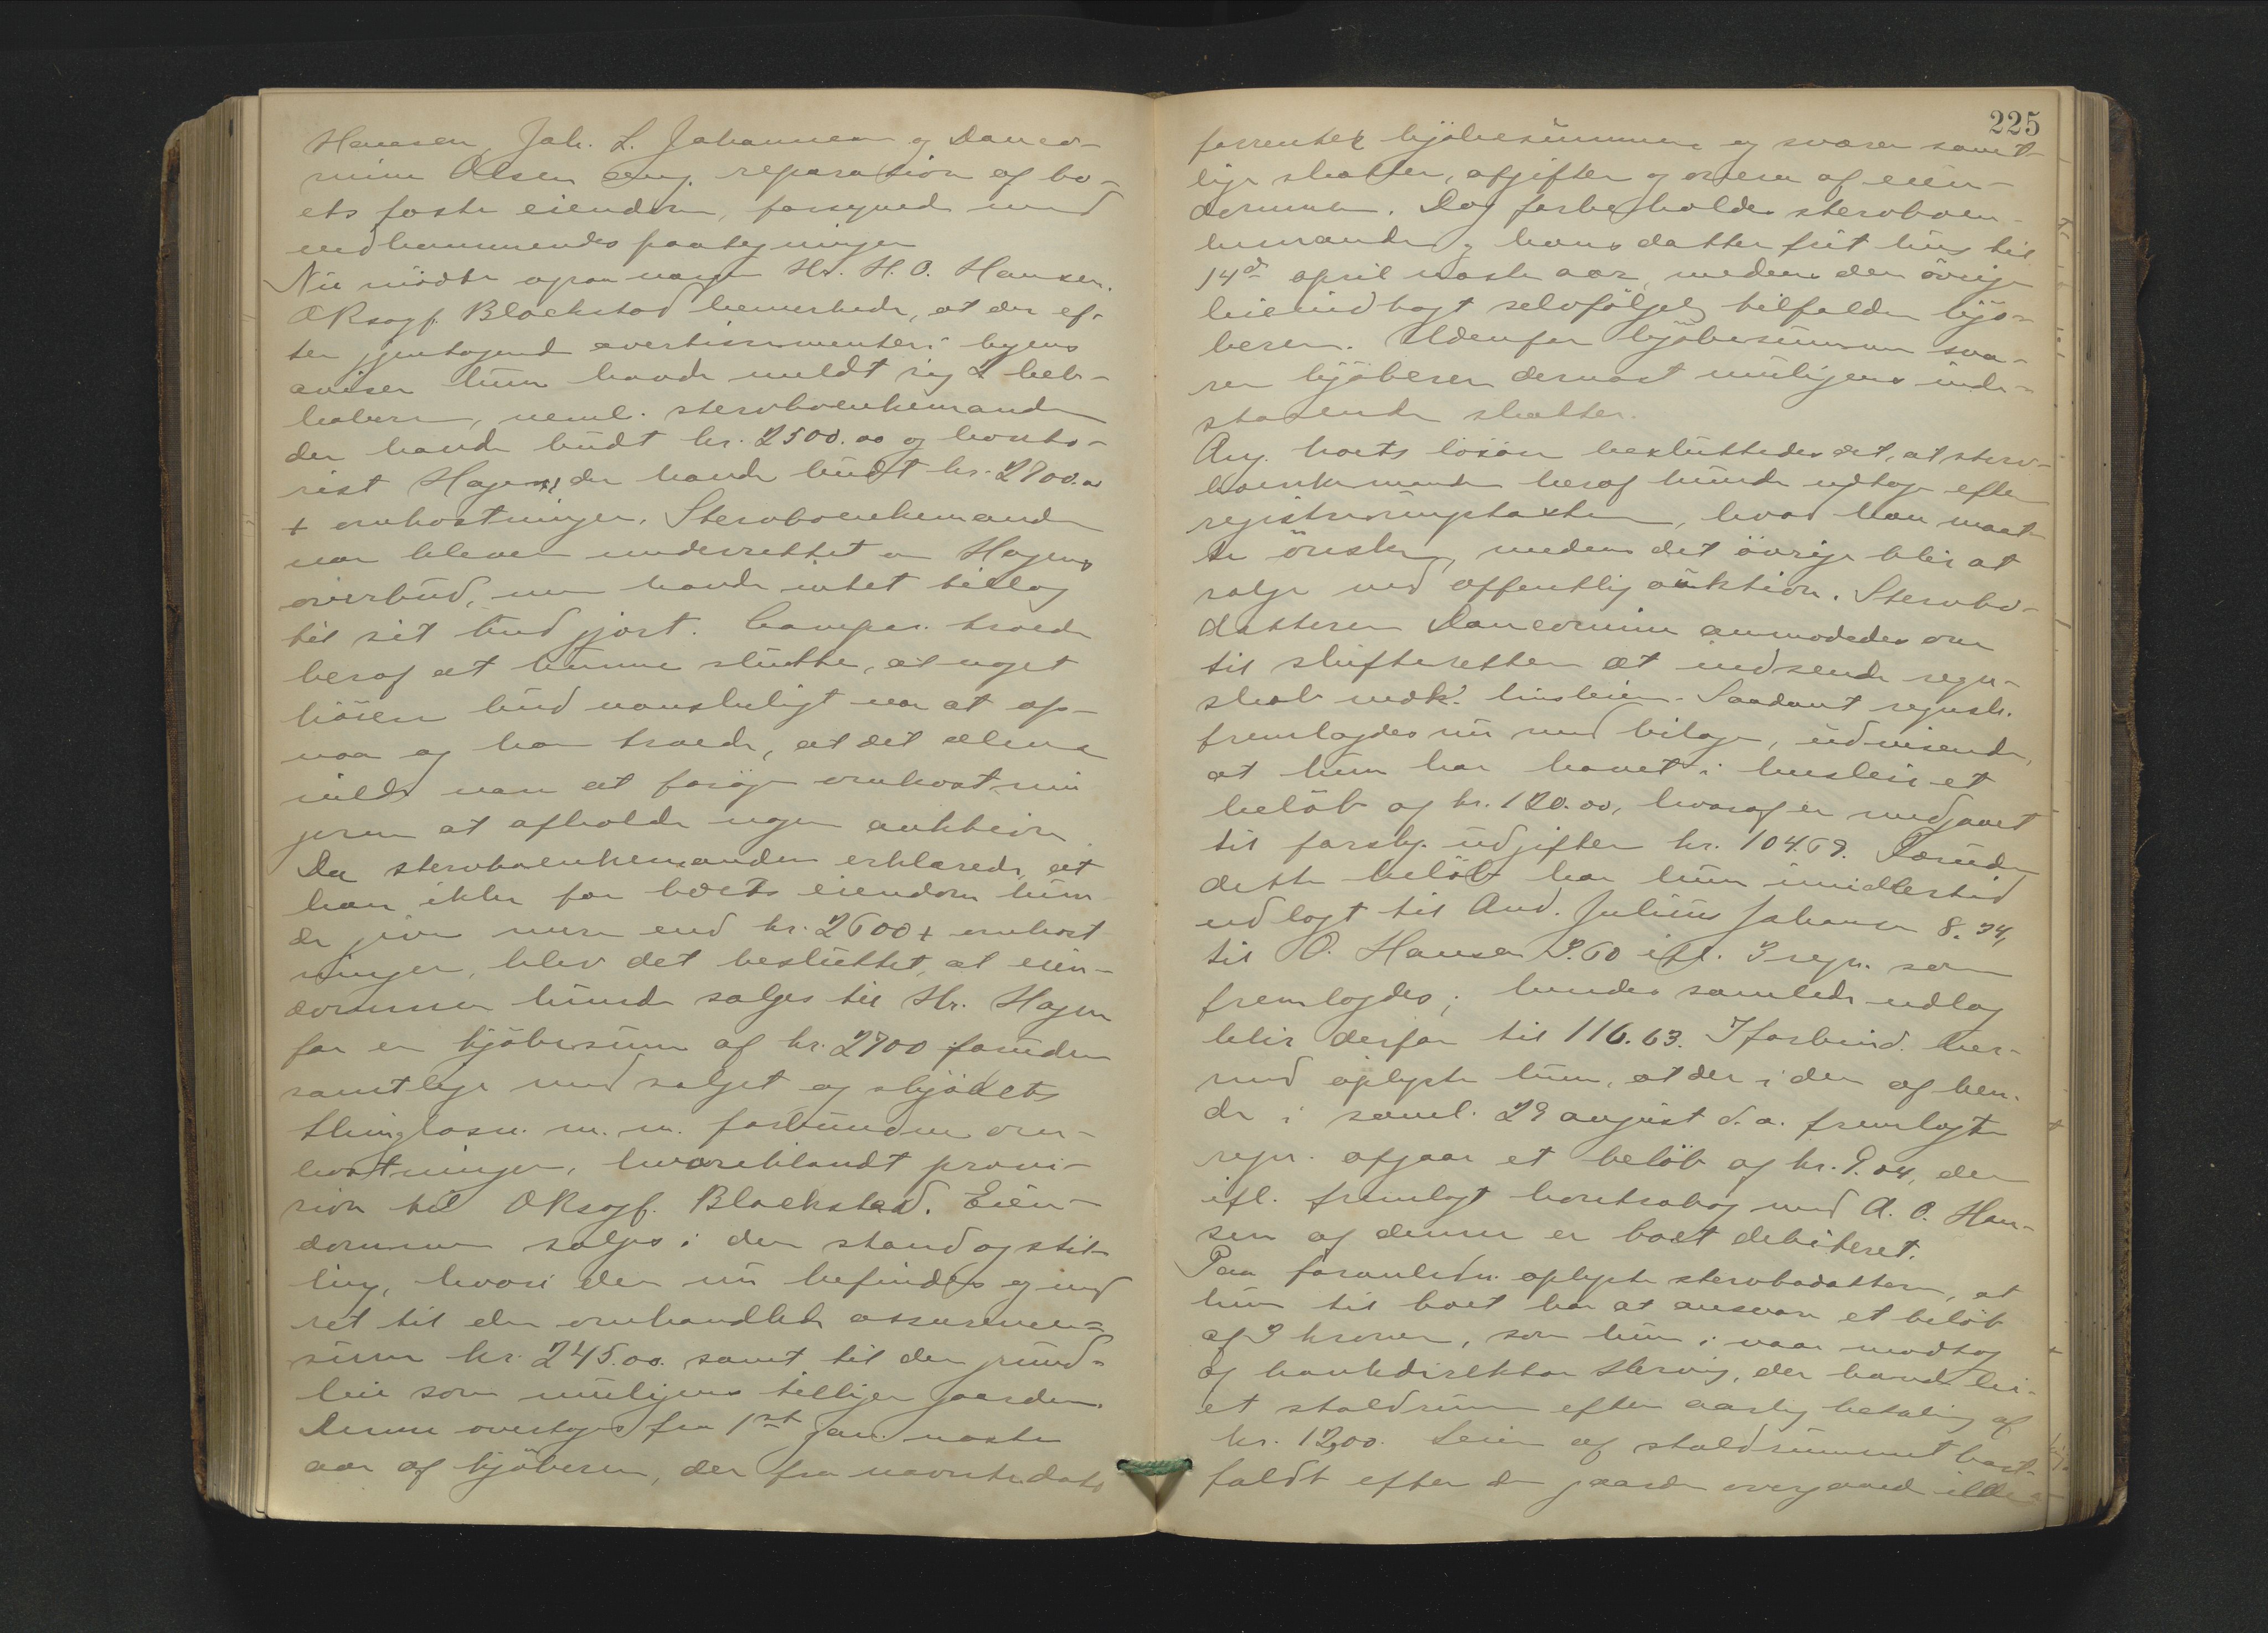 Hansen, Joh. L. Johannesen og Daneo-
mine Olsen ang. reparation af bo-
ets faste eiendom, forsynede med
vedkommendes paategninger
Nu mödte ogsaa værgen Hr. H. O. Hansen.
ORsagf. Blackstad bemerkede, at der ef-
ter gjentagend avertissementer i byens
aviser kun havde meldt sig 2 lieb-
habere, neml. stervboenkemanden
der havde budt kr. 2500.00 og konto-
rist Hagen, der havde budt kr. 2700.00
+ omkostninger. Stervboenkemanden
var bleven underrettet om Hagens
overbud, men havde intet tillæg
til sit bud gjort. Compar. troede
heraf at kunne slutte, at noget
höiere bud vanskeligt var at op-
naa og han troede, at det alene
vilde være at foröge omkostnin
gerne at afholde nogen auktion
Da stervboenkemanden erklærede, at
han ikke for boets eiendom kun
de give mere end kr. 2600 + omkost
ninger, blev det besluttet, at eien-
dommen kunde sælges til Hr. Hagen
for en kjöbesum af kr. 2700 foruden
samtlige med salget og skjödets
thinglæsn. m. m. forbundne om-
kostninger, hvoriblandt provi-
sion til ORsagf. Blackstad. Eien-
dommen sælges i den stand og stil-
ling, hvori den nu befindes og med
ret til den omhandlede assurance-
sum kr. 245.00. samt til den grund-
leie som muligens tilligger gaarden.
Denne overtages fra 1st Jan. næste
aar af kjöberen, der fra nævnte dato
225
forrenter kjöbesummen og svarer samt-
lige skatter, afgifter og onera af eien-
dommen. Dog forbeholdes stervboen-
kemanden og hans datter frit hus til
14de april næste aar, medens den övrige
leieindtægt selvfölgelig tilfalder kjö-
beren. Udenfor kjöbesummen sva-
rer kjöberen dernæst muligens inde-
staaende skatter.
Ang. boets lösöre besluttedes det, at sterv-
boenkemanden heraf kunde udtage efter
registreringstaxten, hvad han maat-
te önske, medens det övrige blir at
sælge ved offentlig auktion. Stervbo-
datteren Daneomine anmodedes om
til skifteretten at indsende regn-
skab vedk. husleien. Saadant regnsk.
fremlagdes nu med bilage, udvisende,
at hun har havet i husleie et
belöb af kr. 120.00, hvoraf er medgaaet
til forskj. udgifter kr. 104.69. Foruden
dette belöb har hun imidlertid
udlagt til And. Julius Johansen 8.34,
til O. Hansen 3.60 ifl. 3 regn. som
fremlagdes; hendes samlede udlæg
blir derfor til 116.63. I forbind. her-
med oplyste hun, at der i den af hen-
de i saml. 29 august d. a. fremlagte
regn. afgaar et belöb af kr. 9.04, der
ifl. fremlagt kontrabog med A. O. Han-
sen af denne er boet debiteret.
Paa foranledn. oplyste stervbodatteren, at
hun til boet har at ansvare et belöb
af 3 kroner, som hun i vaar modtog
af bankdirektör Herwig, der havde leiet
et staldrum efter aarlig betaling af
kr. 12.00. Leien af staldrummet bort-
faldt efter at gaarden overgaaed ilde